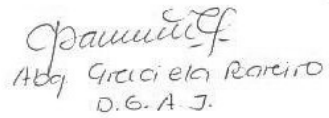 Abg. Graciela Rareiro
D.G.A.J.